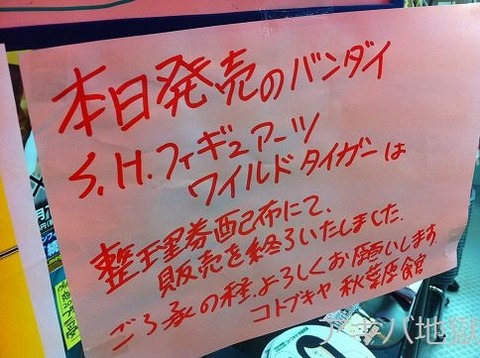 本日発売のバンダイ
S.H.フィギュアーツ
ワイルドタイガーは
整理券配布にて、
販売を終了いたしました.
ご了承の程、よろしくお願いします
コトブキヤ 秋葉原館
アキバ地獄